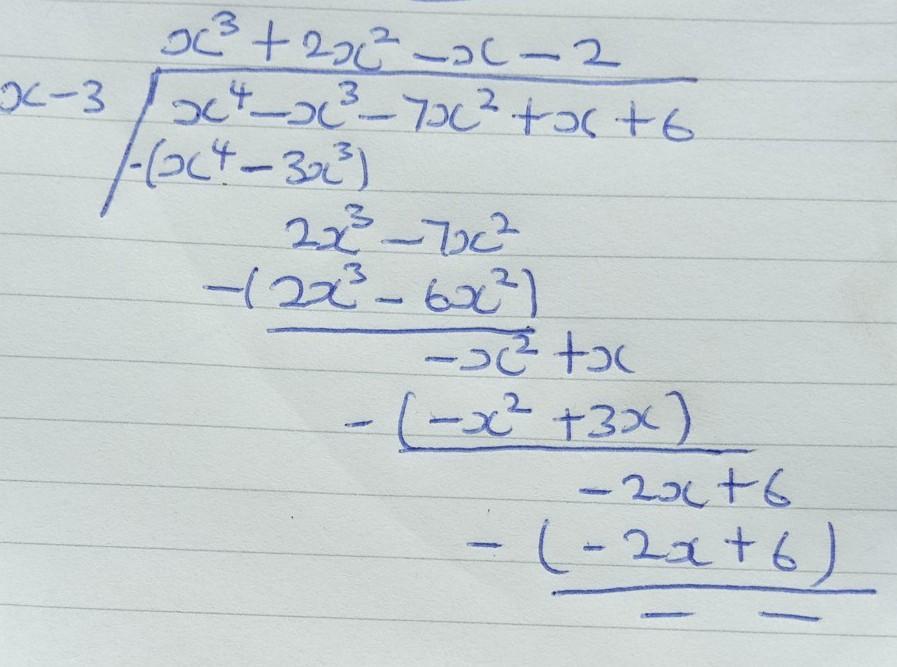 x³ + 2x² - x - 2
x-3 x⁴ - x³ - 7x² + x + 6
-(x⁴ - 3x³)
2x³ - 7x²
-(2x³ - 6x²)
-x² + x
-(-x² + 3x)
-2x + 6
-(-2x + 6)
- -